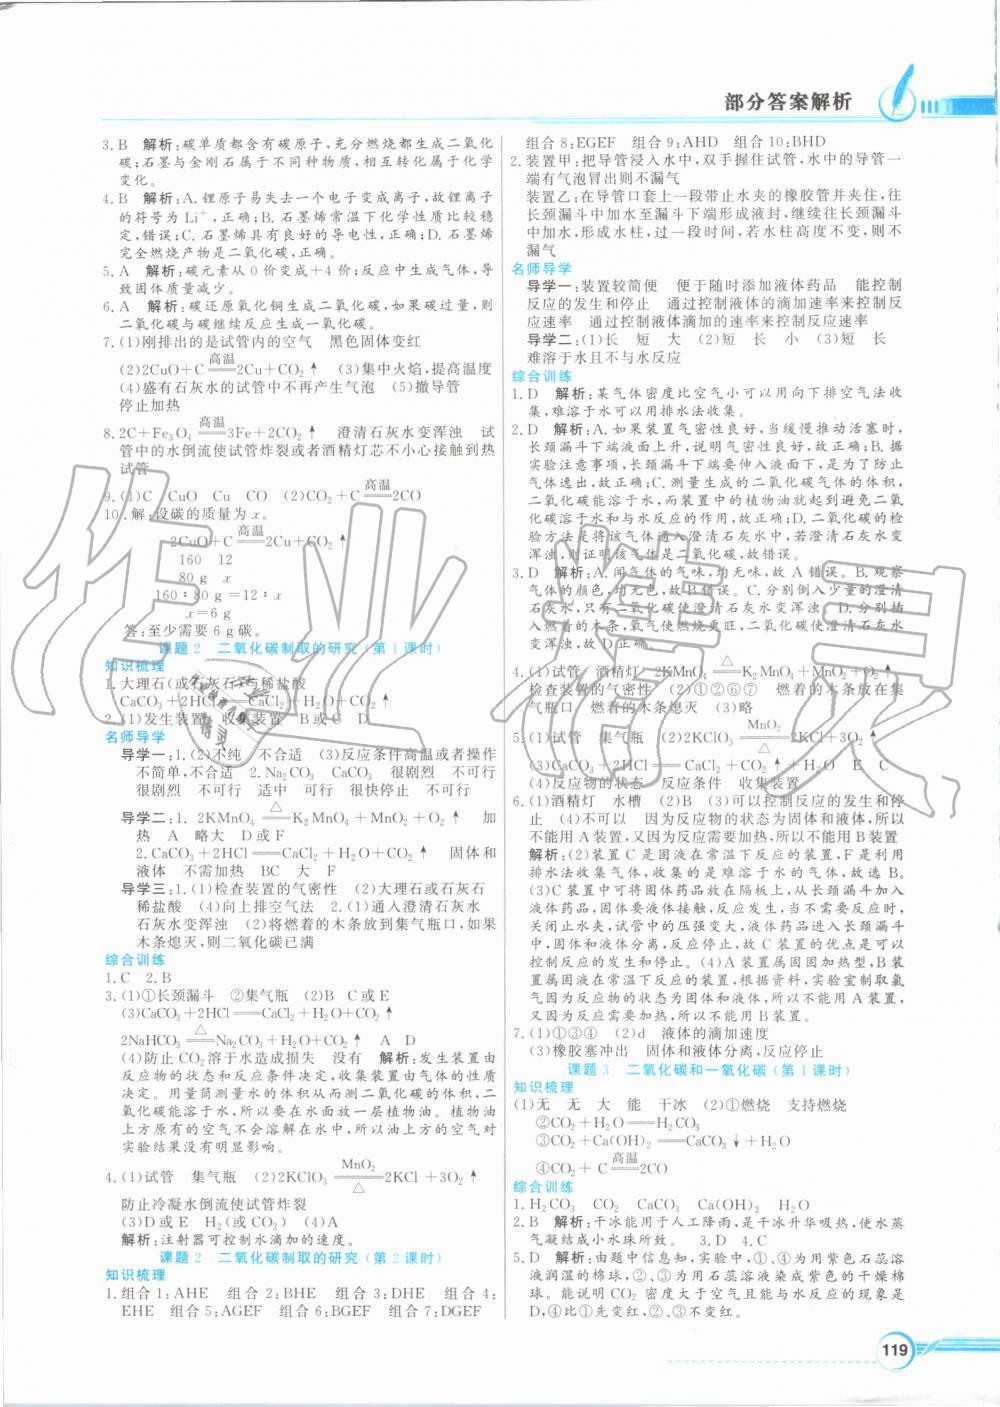 部分答案解析
3. B 解析:碳单质都含有碳原子,充分燃烧都生成二氧化
碳;石墨与金刚石属于不同物质,相互转化属于化学
变化。
4. B 解析:A. 锂原子易失去一个电子变成离子,故锂离子
的符号为 Li⁺,正确;B. 石墨烯常温下化学性质比较稳
定,错误;C. 石墨烯具有良好的导电性,正确;D. 石墨烯
完全燃烧产物是二氧化碳,正确。
5. A 解析:碳元素从 0 价变成+4 价;反应中生成气体,导
致固体质量减少。
6. A 解析:碳还原氧化铜生成二氧化碳,如果碳过量,则
二氧化碳与碳继续反应生成一氧化碳。
7. (1)刚排出的是试管内的空气 黑色固体变红
(2)2CuO+C 高温 2Cu+CO₂↑ (3)集中火焰,提高温度
(4)盛有石灰水的试管中不再产生气泡 (5)撤导管
停止加热
8. 2C+Fe₃O₄ 高温 3Fe+2CO₂↑ 澄清石灰水变浑浊 试
管中的水倒流使试管炸裂或者酒精灯芯不小心接触到热
试管
9. (1)C CuO Cu CO (2)CO₂+C 高温 2CO
10. 解:设碳的质量为 x。
2CuO+C 高温 2Cu+CO₂↑
160 12
80 g x
160∶80 g=12∶x
x=6 g
答:至少需要 6 g 碳。
课题 2 二氧化碳制取的研究(第 1 课时)
知识梳理
1. 大理石(或石灰石)与稀盐酸
CaCO₃+2HCl══CaCl₂+H₂O+CO₂↑
2. (1)发生装置 收集装置 B或C D
名师导学
导学一:1. (2)不纯 不合适 (3)反应条件高温或者操作
不简单,不合适 2. Na₂CO₃ CaCO₃ 很剧烈 不可行
很剧烈 不可行 适中 可行 很快停止 不可行
导学二:1. 2KMnO₄ △ K₂MnO₄+MnO₂+O₂↑ 加
热 A 略大 D或F
2. CaCO₃+2HCl══CaCl₂+H₂O+CO₂↑ 固体和
液体 不需加热 BC 大 F
导学三:1. (1)检查装置的气密性 (2)大理石或石灰石
稀盐酸 (4)向上排空气法 2. (1)通入澄清石灰水
石灰水变浑浊 (2)将燃着的木条放到集气瓶口,如果
木条熄灭,则二氧化碳已满
综合训练
1. C 2. B
3. (1)①长颈漏斗 ②集气瓶 (2)B C或E
(3)CaCO₃+2HCl══CaCl₂+H₂O+CO₂↑
2NaHCO₃ △ Na₂CO₃+H₂O+CO₂↑ A D
(4)防止 CO₂ 溶于水造成损失 没有 解析:发生装置由
反应物的状态和反应条件决定,收集装置由气体的性质
决定。用量筒测量水的体积从而测定二氧化碳的体积,二
氧化碳能溶于水,所以要在水面放一层植物油。植物油
上方原有的空气不会溶解在水中,所以油上方的空气对
实验结果没有明显影响。
4. (1)试管 集气瓶 (2)2KClO₃ MnO₂ △ 2KCl+3O₂↑
防止冷凝水倒流使试管炸裂
(3)D或E H₂(或 CO₂) (4)A
解析:注射器可控制水滴加的速度。
课题 2 二氧化碳制取的研究(第 2 课时)
知识梳理
1. 组合 1:AHE 组合 2:BHE 组合 3:DHE 组合 4:
EHE 组合 5:AGEF 组合 6:BGEF 组合 7:DGEF
组合 8:EGEF 组合 9:AHD 组合 10:BHD
2. 装置甲:把导管浸入水中,双手握住试管,水中的导管一
端有气泡冒出则不漏气
装置乙:在导管口套上一段带止水夹的橡胶管并夹住,往
长颈漏斗中加水至漏斗下端形成液封,继续往长颈漏斗
中加水,形成水柱,过一段时间,若水柱高度不变,则不
漏气
名师导学
导学一:装置较简便 便于随时添加液体药品 能控制
反应的发生和停止 通过控制液体的滴加速率来控制反
应速率 通过控制液体滴加的速率来控制反应速率
导学二:(1)长 短 大 (2)短 长 小 (3)短 长
难溶于水且不与水反应
综合训练
1. D 解析:某气体密度比空气小可以用向下排空气法收
集,难溶于水可以用排水法收集。
2. D 解析:A. 如果装置气密性良好,当缓慢推动活塞时,
长颈漏斗下端液面上升,说明气密性良好,故正确;B. 据
实验注意事项,长颈漏斗下端要伸入液面下,是为了防止
气体逸出,故正确;C. 测量生成的二氧化碳气体的体积,
二氧化碳能溶于水,而装置中的植物油就起到避免二氧
化碳溶于水和与水反应的作用,故正确;D. 二氧化碳的检
验方法是将该气体通入澄清石灰水中,若澄清石灰水变
浑浊,则证明该气体是二氧化碳,故错误。
3. D 解析:A. 闻气体的气味,均无味,故 A 错误。B. 观察
气体的颜色,均无色,故 B 错误。C. 分别倒入少量的澄清
石灰水,只有二氧化碳使澄清石灰水变浑浊。D. 分别插
入燃着的木条,氧气使燃烧更旺,二氧化碳使木条熄灭,
空气无变化。
4. (1)试管 酒精灯 2KMnO₄ △ K₂MnO₄+MnO₂+O₂↑
检查装置的气密性 (2)①②⑥⑦ 燃着的木条放在集
气瓶口 燃着的木条熄灭 (3)略
5. (1)试管 集气瓶 (2)2KClO₃ MnO₂ △ 2KCl+3O₂↑
(3)CaCO₃+2HCl══CaCl₂+H₂O+CO₂↑ E C
(4)反应物的状态 反应条件 收集装置
6. (1)酒精灯 水槽 (2)B (3)可以控制反应的发生和停
止 (4)不可以 因为反应物的状态为固体和液体,所以
不能用 A 装置,又因为反应需要加热,所以不能用 B 装置
解析:(2)装置 C 是固液在常温下反应的装置,F 是利用
排水法收集气体,收集的是难溶于水的气体,故选 B。
(3)C 装置中可将固体药品放在隔板上,从长颈漏斗添加
液体药品,固体要液体接触,反应发生,当不需要反应时,
关闭止水夹,试管中的压强变大,液体药品进入长颈漏斗
中,固体和液体分离,反应停止,故 C 装置的优点是可以
控制反应的发生和停止。(4)A 装置属固固加热型,B装
置属固液常温下反应的装置,根据资料,实验室制取氯
气因为反应物的状态为固体和液体,所以不能用 A 装置,
又因为反应需要加热,所以不能用 B 装置。
7. (1)①③④ (2)d 液体的滴加速度
(3)橡胶塞冲出 固体和液体分离,反应停止
课题 3 二氧化碳和一氧化碳(第 1 课时)
知识梳理
(1)无 无 大 能 干冰 (2)①燃烧 支持燃烧
②CO₂+H₂O══H₂CO₃
③CO₂+Ca(OH)₂══CaCO₃↓+H₂O
④CO₂+C 高温 2CO
综合训练
1. H₂CO₃ CO₂ CaCO₃ Ca(OH)₂ H₂O
2. B 解析:干冰能用于人工降雨,是干冰升华吸热,使水蒸
气凝结成小水珠所致。 3. D 4. C
5. D 解析:由题中信息知,实验中,①、④为用紫色石蕊溶
液润湿的棉球,②、③为用石蕊溶液染成紫色的干燥棉
球。能说明 CO₂ 密度大于空气且能与水反应的现象是
D,④比①先变红,②、③不变红。
119
作业精灵